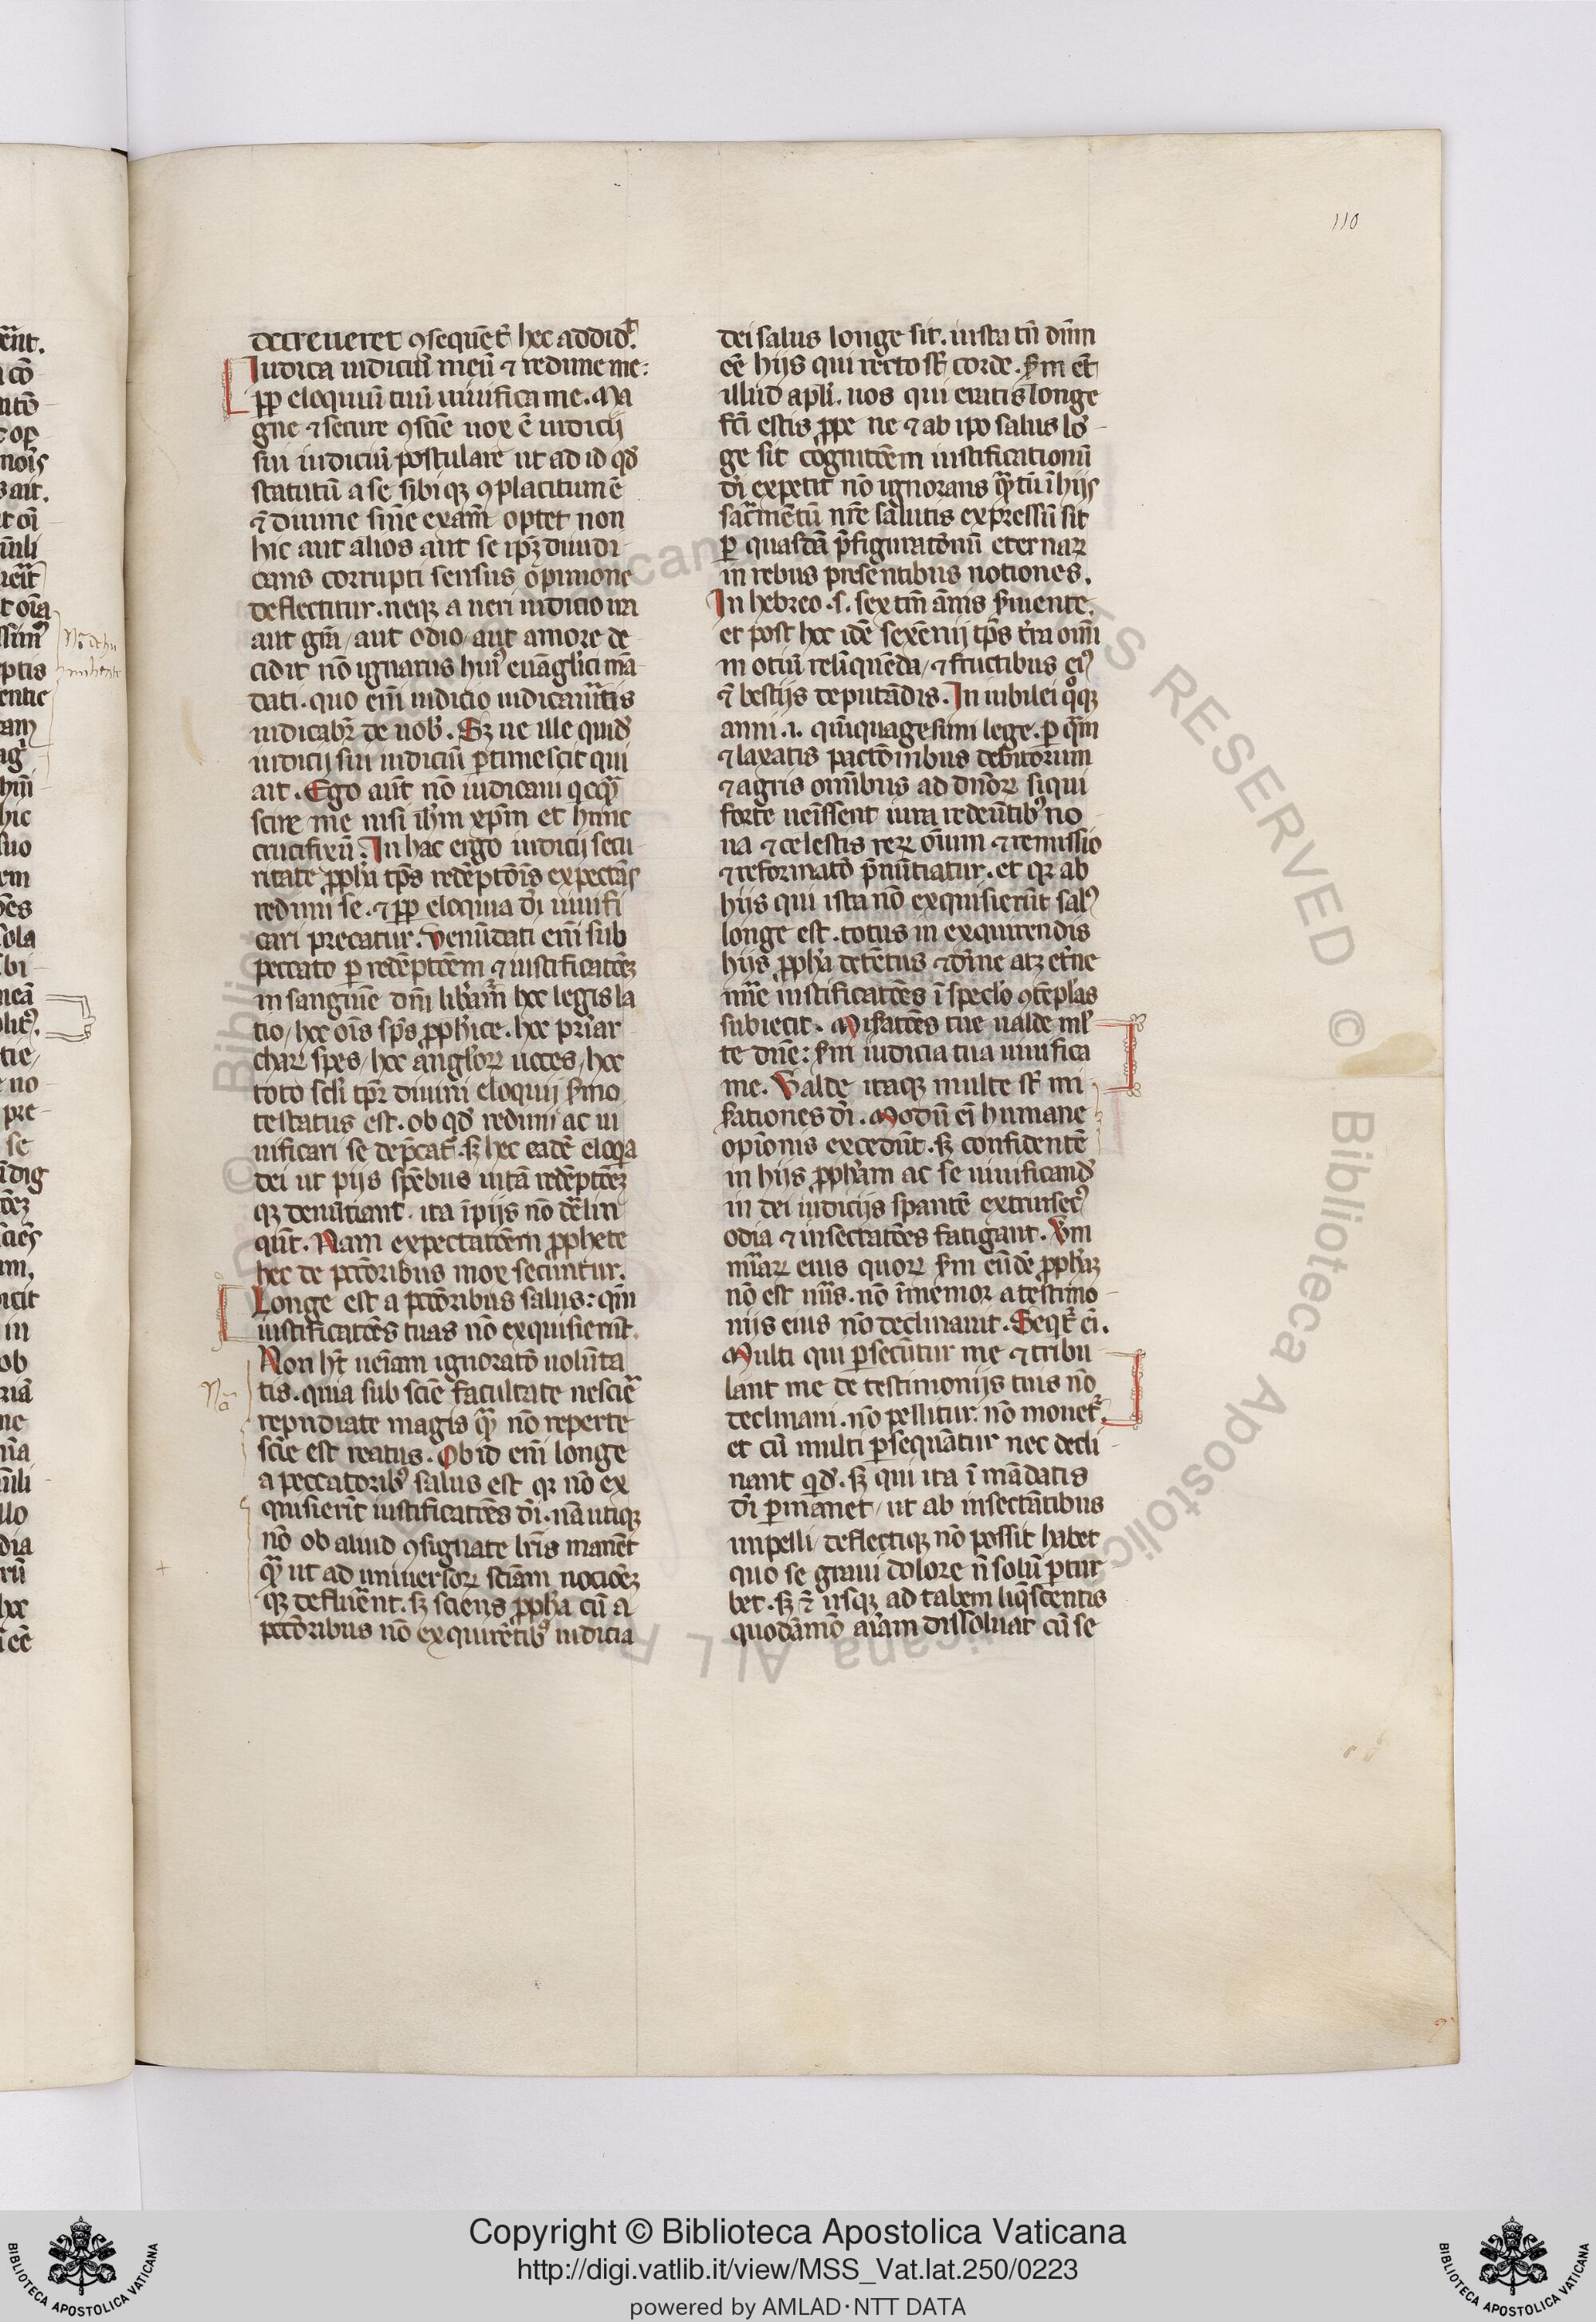 110
decreueret ꝯsequēt᷑ hec addidꝭ.
Iudica iudiciū meū ⁊ redime me:
ꝓꝑ eloquiū tuū uiuifica me. Ma
gne ⁊ secure ꝯsciē uox ē iudicij
sui iudiciū postulare ut ad id qđ
statutū a se sibiqꝫ ꝯplacitum ē
⁊ diuine sniē exam̄ optet non
hic aut alios aut se ip̄ꝫ diiudi-
cans corrupti sensus opinione
deflectitur. neqꝫ a ueri iudicio ira
aut gr̄a/ aut odio/ aut amore de
cidit nō ignarus huiꝰ euāgl̓ici mā-
dati. quo em̄ iudicio iudicau̓itis
iudicabr̄ de nob̓. Sꝫ ne ille quid̓
iudicij sui iudiciū ꝑtimescit qui
ait. Ego aūt nō iudicaui qͨqͣꝫ
scire me nisi ih̓m xp̄m et hunc
crucifixū. In hac ergo iudicij secu
ritate ꝓph̓a tp̄s redēptōis expectās
redimi se. ⁊ ꝓꝑ eloquia dī uiuifi
cari precatur. Uenūdati em̄ sub
peccato ꝑ redēptōem ⁊ iustificatōeꝫ
in sanguīe dn̄i lib̓am̓ hec legis la
tio/ hec oīs sp̄s ꝓph̓ice. hec pr̄iar
chaꝝ spes/ hec angl̓oꝝ uoces/ hec
toto scl̓i tp̄r diuini eloquij ẜmo
testatus est. ob qđ redimi ac ui
uificari se dep̄cat᷑. sꝫ hec eadē eloqͥa
dei ut pijs spēbus uitā redēptōeꝫ
qꝫ denūtiant. ita īpijs nō derelin
qūt. Nam expectatōem ꝓphete
hec de pctōribus mox secūntur.
Longe est a pctōribus salus: qm̄
iustificatōes tuas nō exquisierūt.
Non hn̄t ueīam ignoratō uolūta
tis. quia sub sciē facultate nescire
repudiate magis qͣꝫ nō reperte
sciē est reatus. Ob id em̄ longe
a peccatoribꝰ salus est qꝛ nō ex
quisierīt iustificatōes dī. nā utiqꝫ
nō ob aliud ꝯsignate lr̄is manēt
qͣꝫ ut ad uniuersoꝝ sciāꝫ nocioēꝫ
qꝫ defluerent. sꝫ sciens ꝓph̓a cū a
pctōribus nō exquirētibꝰ iudicia
dei salus longe sit. iusta tn̄ dn̄m
eē hijs qui recto st̄ corde. ẜm et̄
illud apl̓i. uos qui eratis longe
fcī estis ꝓpe ne ⁊ ab ip̄o salus lō-
ge sit cognitōem iustificationū
dī expetit nō ignorans qͣꝫtū ī hijs
sacͣmētū nr̄e salutis expressū sit
ꝑ quasdā p̄figuratōnū eternaꝝ
in rebus presentibus notiones.
In hebreo .s. sextm̄ ānis ẜuiente.
et post hec idē sexēnij tp̄s tr̄a om̄i
in otiū relīquēda/ ⁊ fructibus eiꝰ
⁊ bestijs deputādis. In iubilei qͦqꝫ
anni .i. quīquagesimi lege. ꝑ qͣm
⁊ laxatis pactōnibus debitorum
⁊ agris omībus ad dn̄oꝝ siqui
forte ueīssent iura redeūtibꝰ no-
ua ⁊ celestis reꝝ oīum ⁊ remissio
⁊ reformatō p̄nūtiatur. et qꝛ ab
hijs qui ista nō exquisierūt salꝰ
longe est. totus in exquirendis
hijs ꝓph̓a detētus ⁊ diuine atqꝫ et̄ne
mīe iustificatōes ī specl̓o ꝯtēplās
subiecit. Miẜatōes tue ualde ml̓
te dn̄e: ẜm iudicia tua uiuifica
me. Ualde itaqꝫ multe st̄ mi
ẜationes dī. Modū em̄ humane
opīonis excedūt. sꝫ confidentē
in hijs ꝓph̓am ac se uiuificand̓
in dei iudicijs sꝑantē extrinsecꝰ
odia ⁊ insectatōes fatigant. Uerum
mīaꝝ eius quoꝝ ẜm eūdē ꝓph̓aꝫ
nō est nūs. nō īmemor a testimo
nijs eius nō declinauit. Seqt᷑ em̄.
Multi qui ꝑsecūtur me ⁊ tribu
lant me de testimonijs tuis nō
declinaui. nō pellitur. nō mouet᷑.
et cū multi ꝑsequātur nec decli-
nant qͥd̓. sꝫ qui ita ī mādatis
dī ꝑmanet/ ut ab insectātibus
impelli/ deflectiqꝫ nō possit habet
quo se graui dolore n̄ solū ꝑtur
bet. sꝫ ⁊ usqꝫ ad tabem liq̄scentis
quodāmō aīam dissoluat cū se
Copyright © Biblioteca Apostolica Vaticana
http://digi.vatlib.it/view/MSS_Vat.lat.250/0223
powered by AMLAD·NTT DATA
BIBLIOTECA APOSTOLICA VATICANA
BIBLIOTECA APOSTOLICA VATICANA